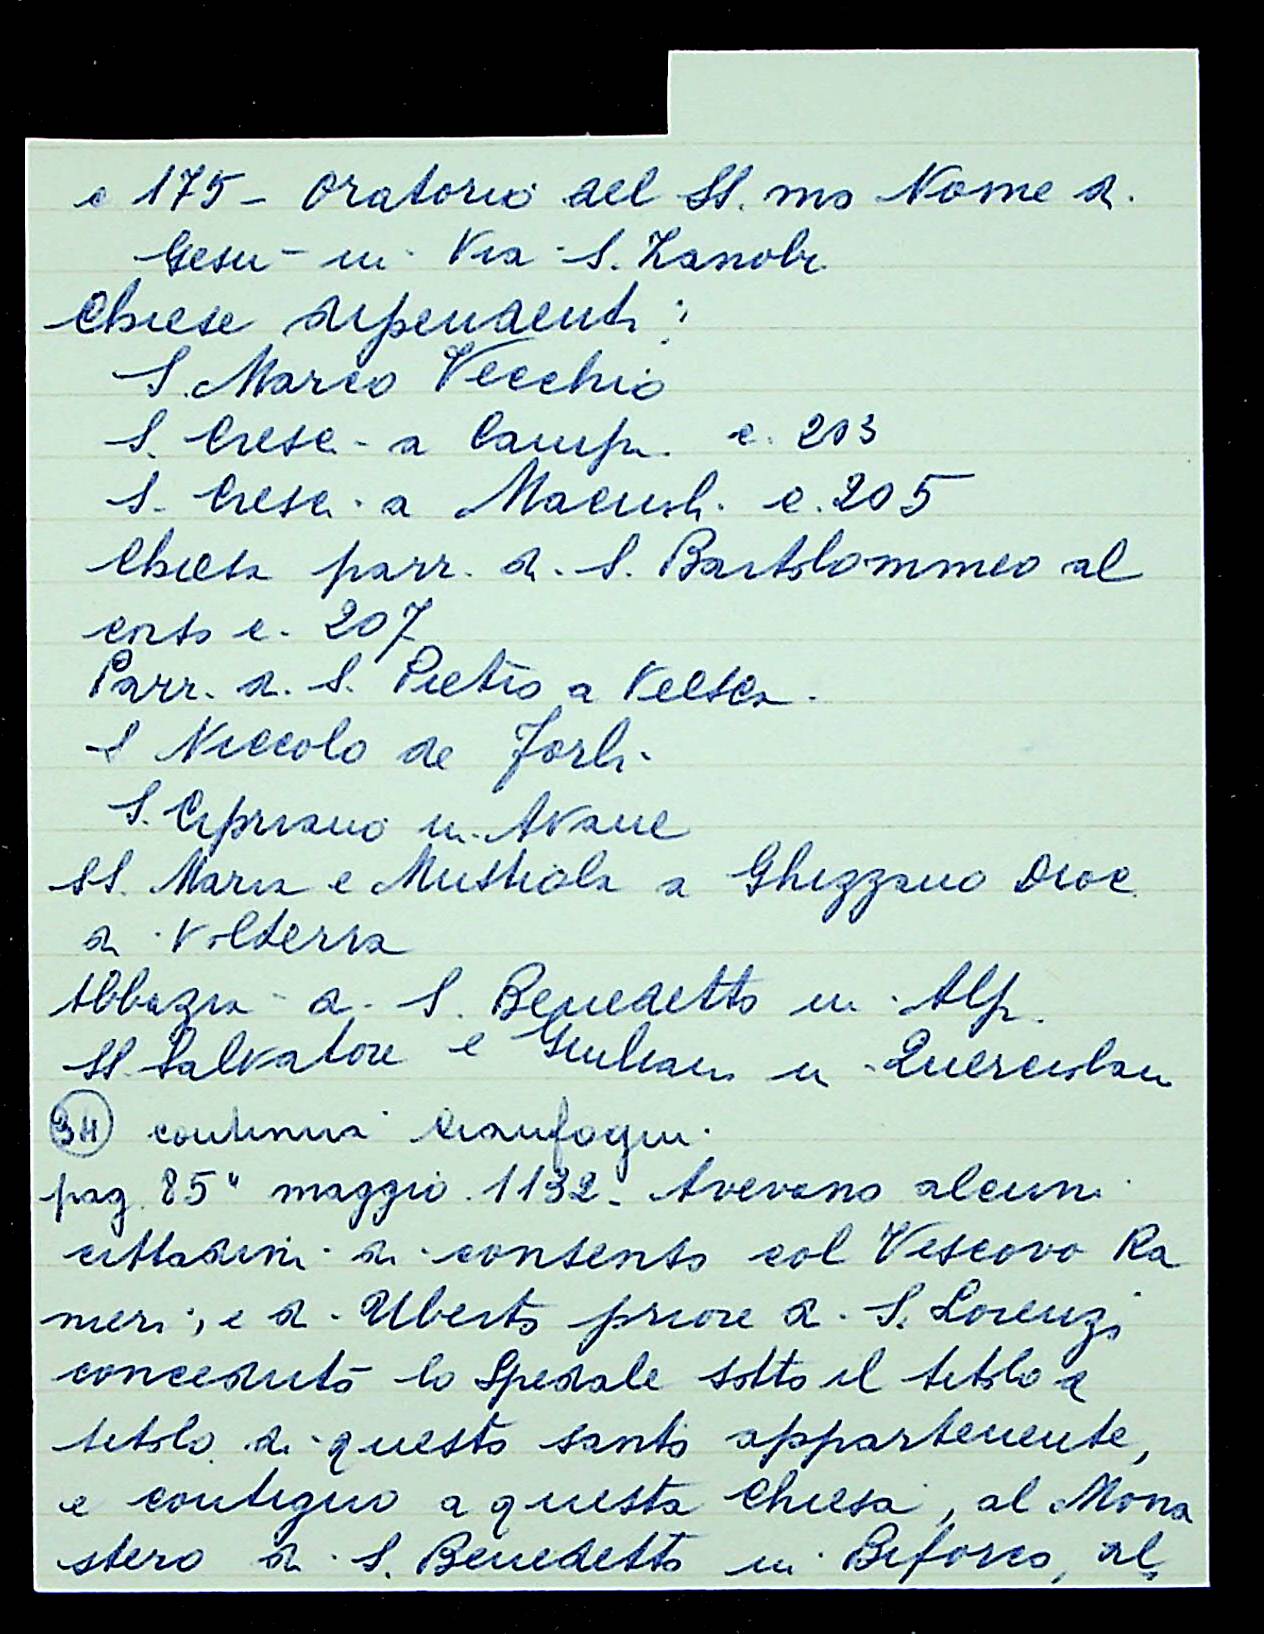 c 175 - Oratorio del SS.mo Nome di
Gesu - in Via S. Zanobi
Chiese dipendenti:
S. Marco Vecchio
S. Cresci - a Campi c. 203
S. Cresci a Macioli c. 205
Chiesa parr. di S. Bartolommeo al
corso c. 207
Parr. di S. Pietro a
S Niccolo de Forli
S. Cipriano in Avane
SS. Maria e Mustiola a Ghizzano Dioc
di Volterra
Abbazia di S. Benedetto in Alpi
SS. Salvatore e Giuliano in
34 continua Cianfogni
pag 85" maggio 1132. Avevano alcuni
cittadini di consenso col Vescovo Ra
nieri, e di Uberto priore di S. Lorenzo
conceduto lo Spedale sotto il titolo e
titolo di questo santo appartenente,
e contiguo a questa Chiesa, al Mona
stero di S. Benedetto in Biforco, al